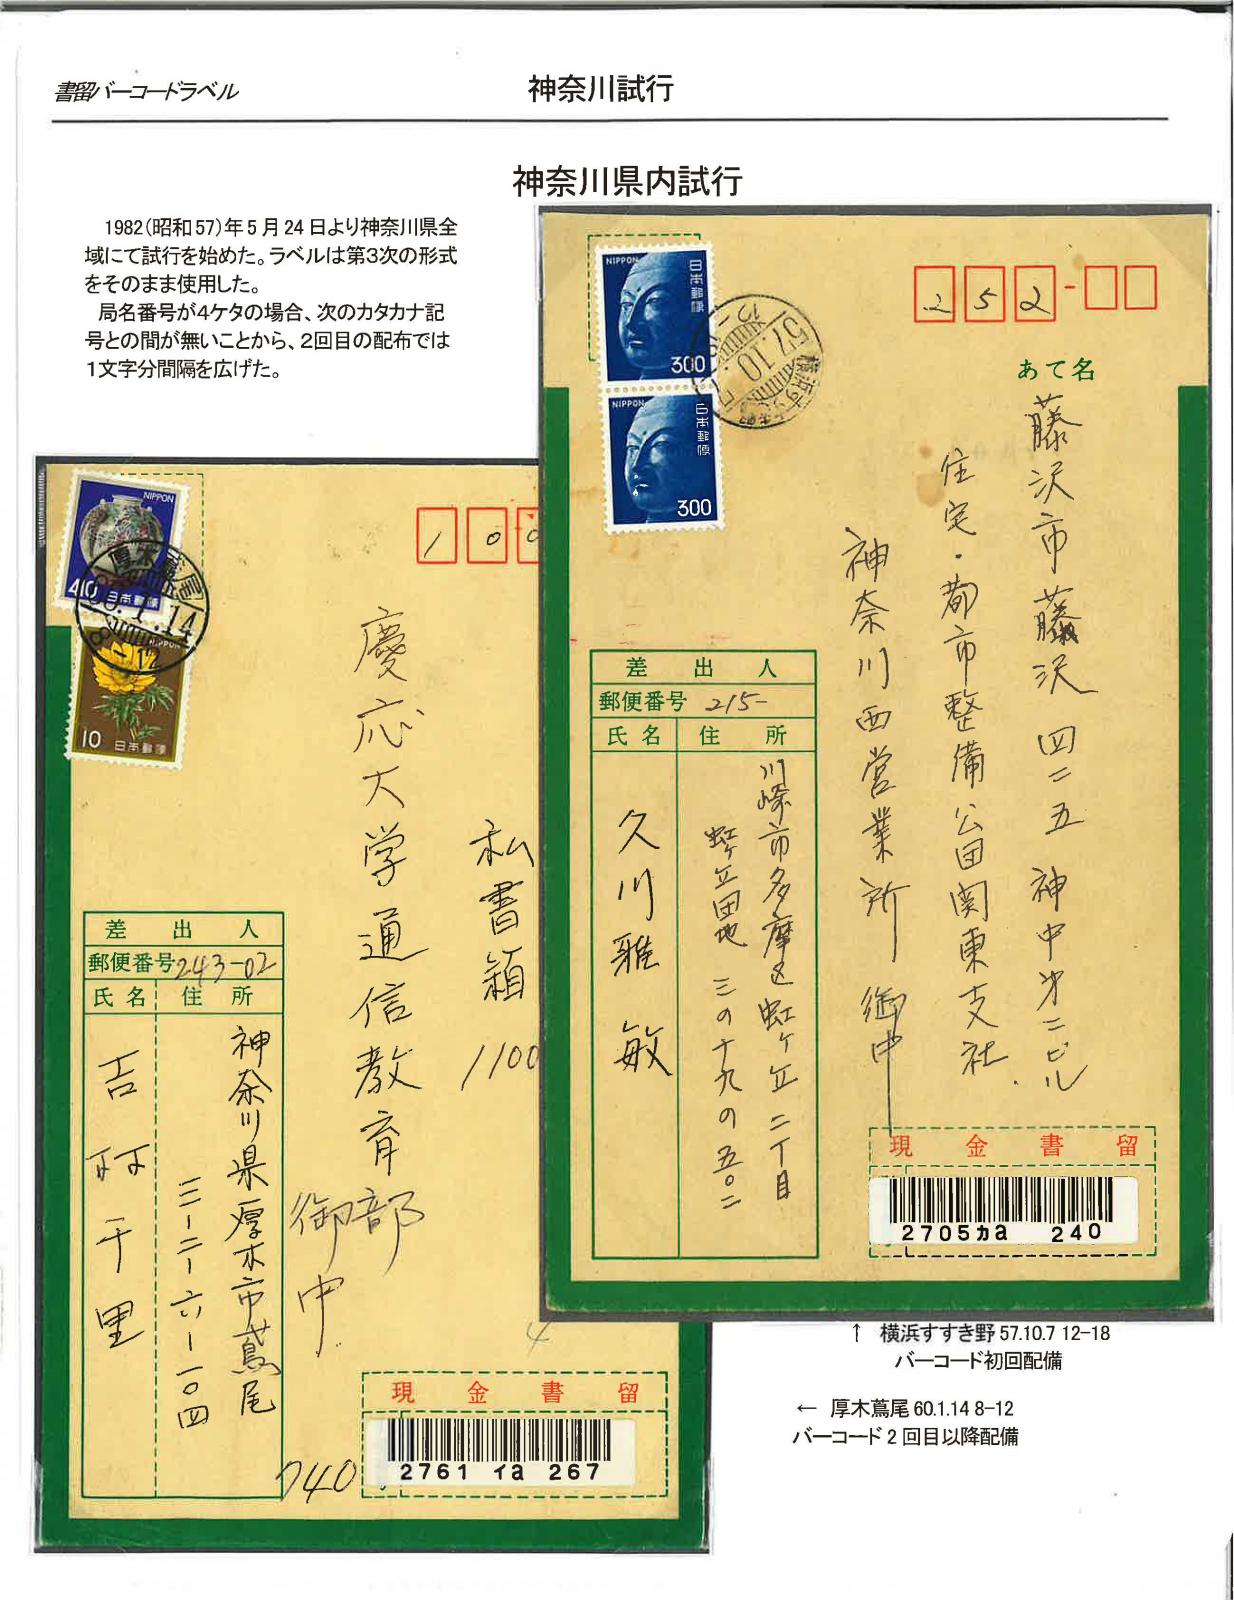 書留バーコードラベル
神奈川試行
神奈川県内試行
1982(昭和57)年5月24日より神奈川県全
域にて試行を始めた。ラベルは第3次の形式
をそのまま使用した。
局名番号が4ケタの場合、次のカタカナ記
号との間が無いことから、2回目の配布では
1文字分間隔を広げた。
NIPPON
日本郵便
300
NIPPON
日本郵便
300
57.10
252-
あて名
藤沢市藤沢四二五 神中オ二ビル
住宅・都市整備公団関東支社
神奈川西営業所 御中
差出人
郵便番号 215-
氏名 住所
川崎市多摩区虹ヶ丘二丁目
虹ヶ丘団地 三の十九の五〇二
久川雅敏
現金書留
2705カa 240
↑ 横浜すすき野 57.10.7 12-18
バーコード初回配備
← 厚木鳶尾 60.1.14 8-12
バーコード2回目以降配備
NIPPON
410 日本郵便
厚木鳶尾
60.1.14
8-12
NIPPON
10 日本郵便
100
私書箱 1100
慶応大学通信教育部
御中
差出人
郵便番号 243-02
氏名 住所
神奈川県厚木市鳶尾
三-二-六-一〇四
吉村千里
740
現金書留
2761 イa 267